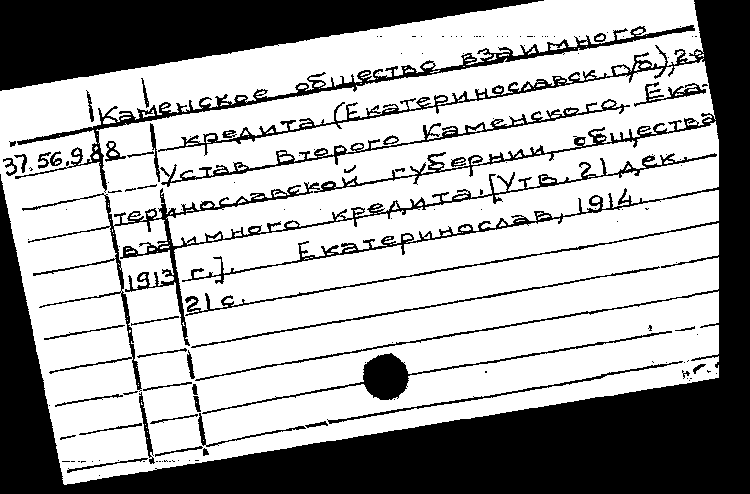 Каменское общество взаимного
кредита. (Екатеринославск. губ.), 2-е
37.56.9.88
Устав Второго Каменского, Ека-
теринославской губернии, общества
взаимного кредита. [Утв. 21 дек.
1913 г.]. Екатеринослав, 1914.
21 с.